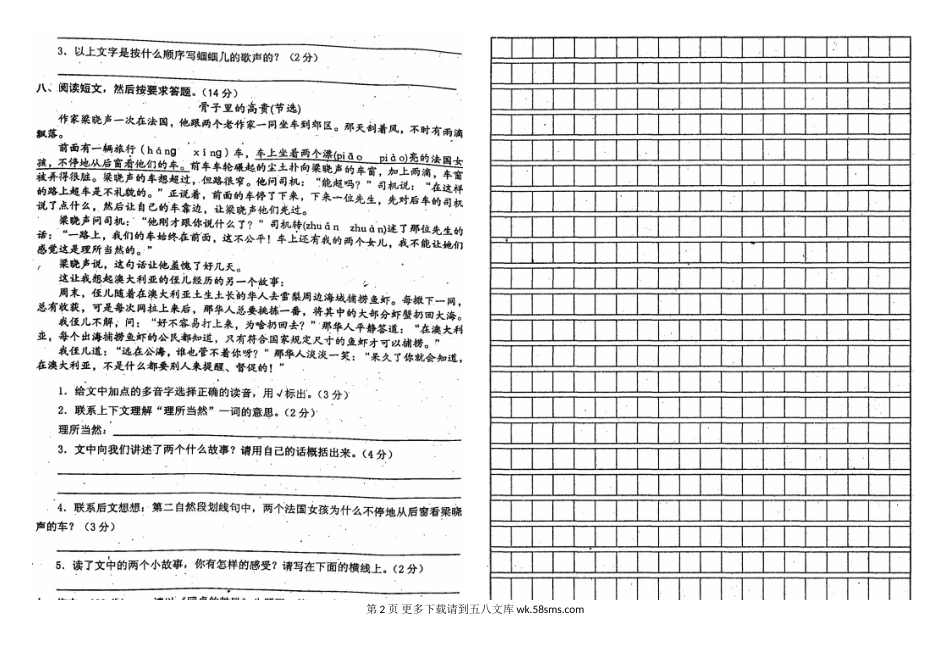 3．以上文字是按什么顺序写蝈蝈儿的歌声的？（2分）
八、阅读短文，然后按要求答题。（14分）
骨子里的高贵(节选)
作家梁晓声一次在法国，他跟两个老作家一同坐车到郊区。那天刮着风，不时有雨滴
飘落。
前面有一辆旅行（háng　xíng）车，车上坐着两个漂(piāo　piào)亮的法国女
孩，不停地从后窗看他们的车。前车车轮碾起的尘土扑向梁晓声的车窗，加上雨滴，车窗
被弄得很脏。梁晓声的车想超过，但路很窄。他问司机：“能超吗？”司机说：“在这样
的路上超车是不礼貌的。”正说着，前面的车停了下来，下来一位先生，先对后车的司机
说了点什么，然后让自己的车靠边，让梁晓声他们先过。
梁晓声问司机：“他刚才跟你说什么了？”司机转(zhuǎn　zhuàn)述了那位先生的
话：“一路上，我们的车始终在前面，这不公平！车上还有我的两个女儿，我不能让她们
感觉这是理所当然的。”
梁晓声说，这句话让他羞愧了好几天。
这让我想起澳大利亚的侄儿经历的另一个故事：
周末，侄儿随着在澳大利亚土生土长的华人去雪梨周边海域捕捞鱼虾。每撒下一网，
总有收获，可是每次网拉上来后，那华人总要挑拣一番，将其中的大部分虾蟹扔回大海。
我侄儿不解，问：“好不容易打上来，为啥扔回去？”那华人平静答道：“在澳大利
亚，每个出海捕捞鱼虾的公民都知道，只有符合国家规定尺寸的鱼虾才可以捕捞。”
我侄儿道：“远在公海，谁也管不着你呀？”那华人淡淡一笑：“呆久了你就会知道，
在澳大利亚，不是什么都要别人来提醒、督促的！”
1．给文中加点的多音字选择正确的读音，用√标出。（3分）
2．联系上下文理解“理所当然”一词的意思。（2分）
理所当然：
3．文中向我们讲述了两个什么故事？请用自己的话概括出来。（4分）
4．联系后文想想：第二自然段划线句中，两个法国女孩为什么不停地从后窗看梁晓
声的车？（3分）
5．读了文中的两个小故事，你有怎样的感受？请写在下面的横线上。（2分）
第 2 页 更多下载请到五八文库 wk.58sms.com